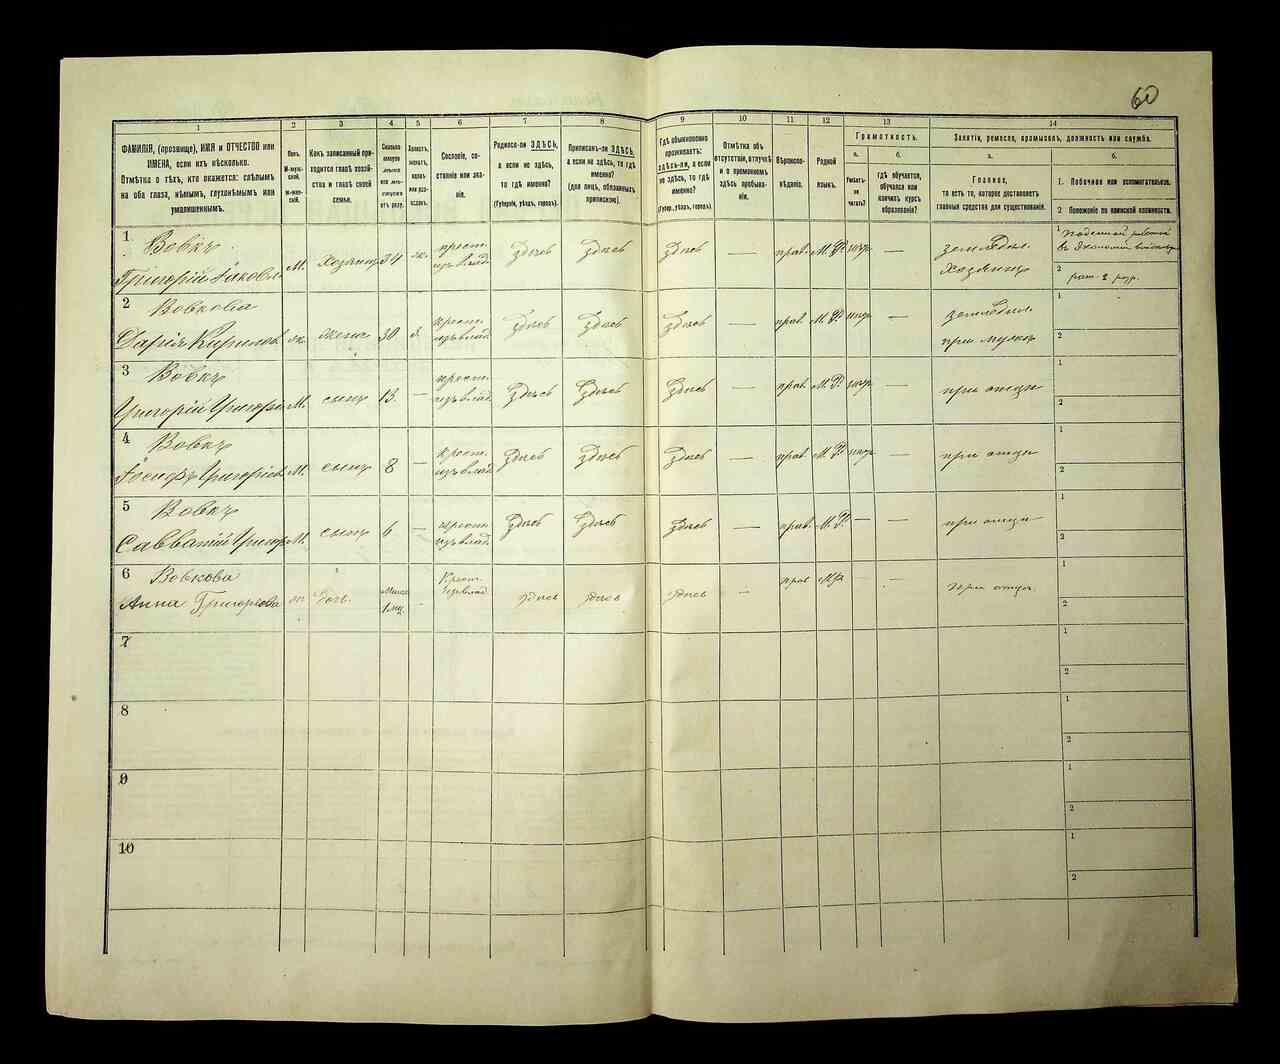 60
1 2 3 4 5 6 7 8 9 10 11 12 13 14
ФАМИЛІЯ, (прозвище), ИМЯ и ОТЧЕСТВО или
ИМЕНА, если ихъ нѣсколько.
Отмѣтка о тѣхъ, кто окажется: слѣпымъ
на оба глаза, нѣмымъ, глухонѣмымъ или
умалишеннымъ.
Полъ.
М-муж-
ской.
Ж-жен-
скій.
Какъ записанный при-
ходится главѣ хозяй-
ства и главѣ своей
семьи.
Сколько
минуло
лѣтъ
или мѣ-
сяцевъ
отъ роду.
Холостъ,
женатъ,
вдовъ
или раз-
веденъ.
Сословіе, со-
стояніе или зва-
ніе.
Родился-ли ЗДѢСЬ,
а если не здѣсь,
то гдѣ именно?
(Губернія, уѣздъ, городъ).
Приписанъ-ли ЗДѢСЬ,
а если не здѣсь, то гдѣ
именно?
(для лицъ, обязанныхъ
припискою).
Гдѣ обыкновенно
проживаетъ:
здѣсь-ли, а если
не здѣсь, то гдѣ
именно?
(Губер., уѣздъ, городъ).
Отмѣтка объ
отсутствіи, отлучкѣ
и о временномъ
здѣсь пребыва-
ніи.
Вѣроиспо-
вѣданіе.
Родной
языкъ.
Грамотность.
а.
Умѣетъ-
ли
читать?
б.
гдѣ обучается,
обучался или
кончилъ курсъ
образованія?
Занятіе, ремесло, промыселъ, должность или служба.
а.
Главное,
то есть то, которое доставляетъ
главныя средства для существованія.
б.
1. Побочное или вспомогательное.
2 Положеніе по воинской повинности.
1 Вовкъ
Григорій Яковл. М. Хозяинъ 34 ж. крест. изъ влад. Здѣсь Здѣсь Здѣсь — прав. М. Р. негр. — земледѣл. Хозяинъ
1 Поденной работой въ Экономіи
2 рат. 2 разр.
2 Вовкова
Дарія Кирилов. ж. жена 30 з. крест. изъ влад. Здѣсь Здѣсь Здѣсь — прав. М. Р. негр. — земледѣл. при мужѣ
1
2
3 Вовкъ
Григорій Григорій М. сынъ 13. — крест. изъ влад. Здѣсь Здѣсь Здѣсь — прав. М. Р. негр. — при отцѣ
1
2
4 Вовкъ
Іосифъ Григоріев М. сынъ 8 — крест. изъ влад. Здѣсь Здѣсь Здѣсь — прав. М. Р. негр. — при отцѣ
1
2
5 Вовкъ
Савватій Григор М. сынъ 6 — крест. изъ влад. Здѣсь Здѣсь Здѣсь — прав. М. Р. — — при отцѣ
1
2
6 Вовкова
Анна Григорьева ж. дочь. 1 мц. Крест. изъ влад. здѣсь здѣсь здѣсь — прав МР - - При отцѣ.
1
2
7
1
2
8
1
2
9
1
2
10
1
2